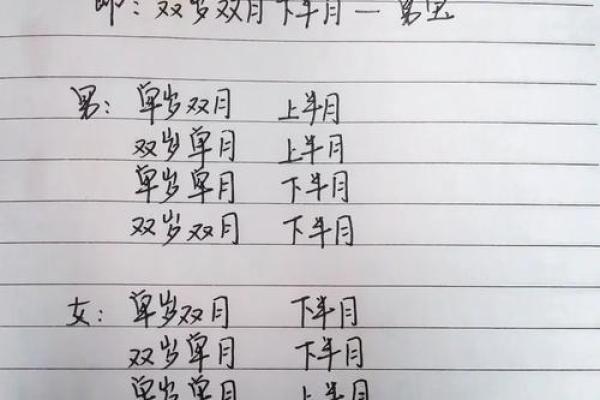 即：双岁双月下半月一男宝
男：单岁双月 上半月
双岁单月 上半月
单岁单月 下半月
双岁双月 下半月
女：单岁双月 下半月
双岁单月 下半月
单岁单月 上半月